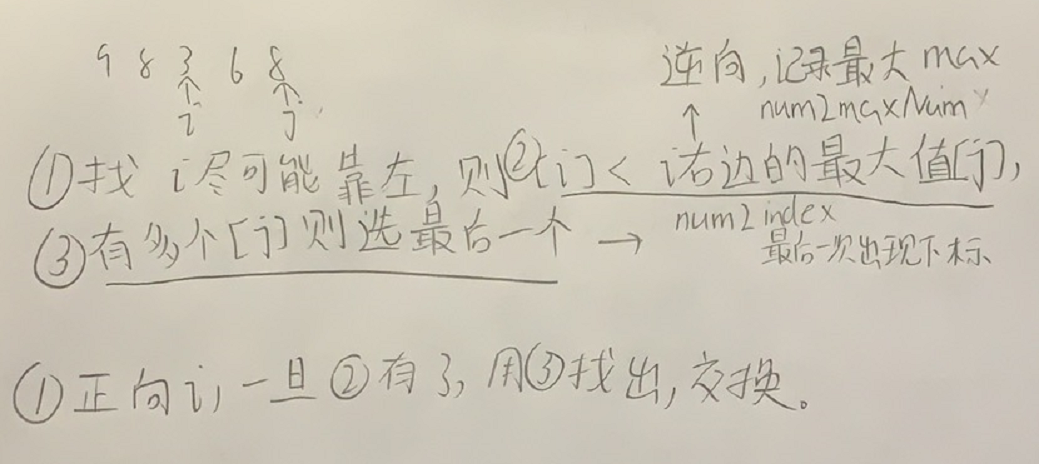 9 8 3 6 8
↑ ↑
i j
逆向,记录最大 max
↑ num2maxNum
①找 i尽可能靠左,则②[i] < i右边的最大值[j],
③有多个[j]则选最后一个 → num2index
最后一次出现下标
①正向i,一旦②有了,用③找出,交换。